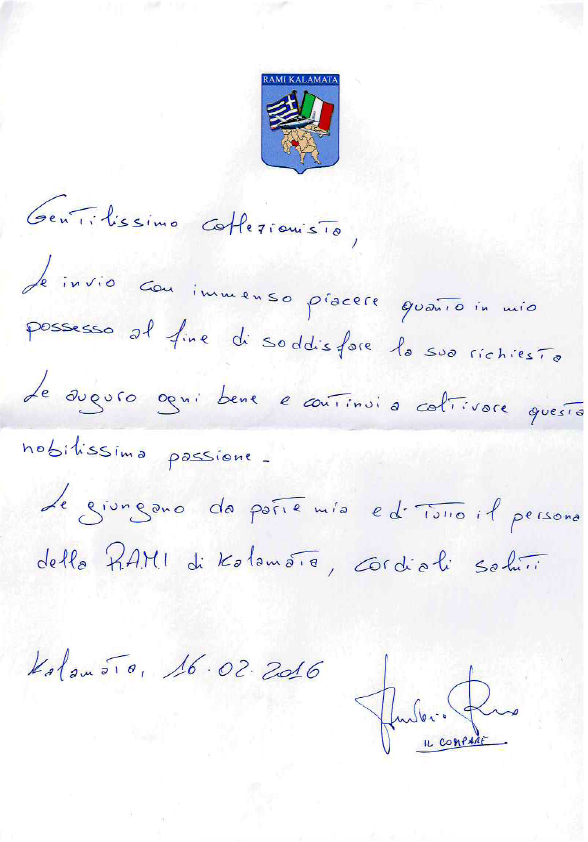 RAMI KALAMATA
Gentilissimo collezionista,
Le invio con immenso piacere quanto in mio
possesso al fine di soddisfare la sua richiesta
Le auguro ogni bene e continui a coltivare questa
nobilissima passione -
Le giungano da parte mia e di tutto il persona
della R.A.M.I di Kalamata, cordiali saluti
Kalamata, 16.02.2016
IL COMPARE